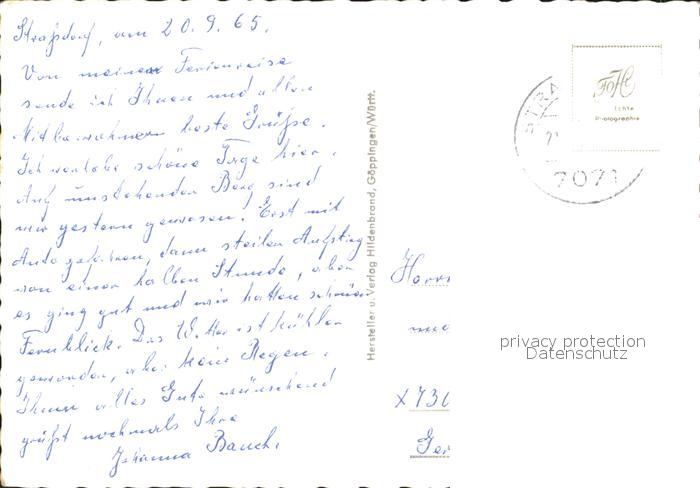 Straßdorf, am 20.9.65.
Von meiner Ferienreise
sende ich Ihnen und allen
Mitbewohnern beste Grüße.
Ich verlebe schöne Tage hier.
Auf umstehenden Berg sind
wir gestern gewesen. Erst mit
Auto gefahren, dann steilen Aufstieg
von einer halben Stunde, aber
es ging gut und wir hatten schönen
Fernblick. Das Wetter ist kühler
geworden, aber kein Regen.
Ihnen alles Gute wünschend
grüßt nochmals Ihre
Johanna Bauch.
Hersteller u. Verlag Hildenbrand, Göppingen/Württ.
STRA
7071
FoHi
Echte
Photographie
Herrn
und
X730
Ger
privacy protection
Datenschutz